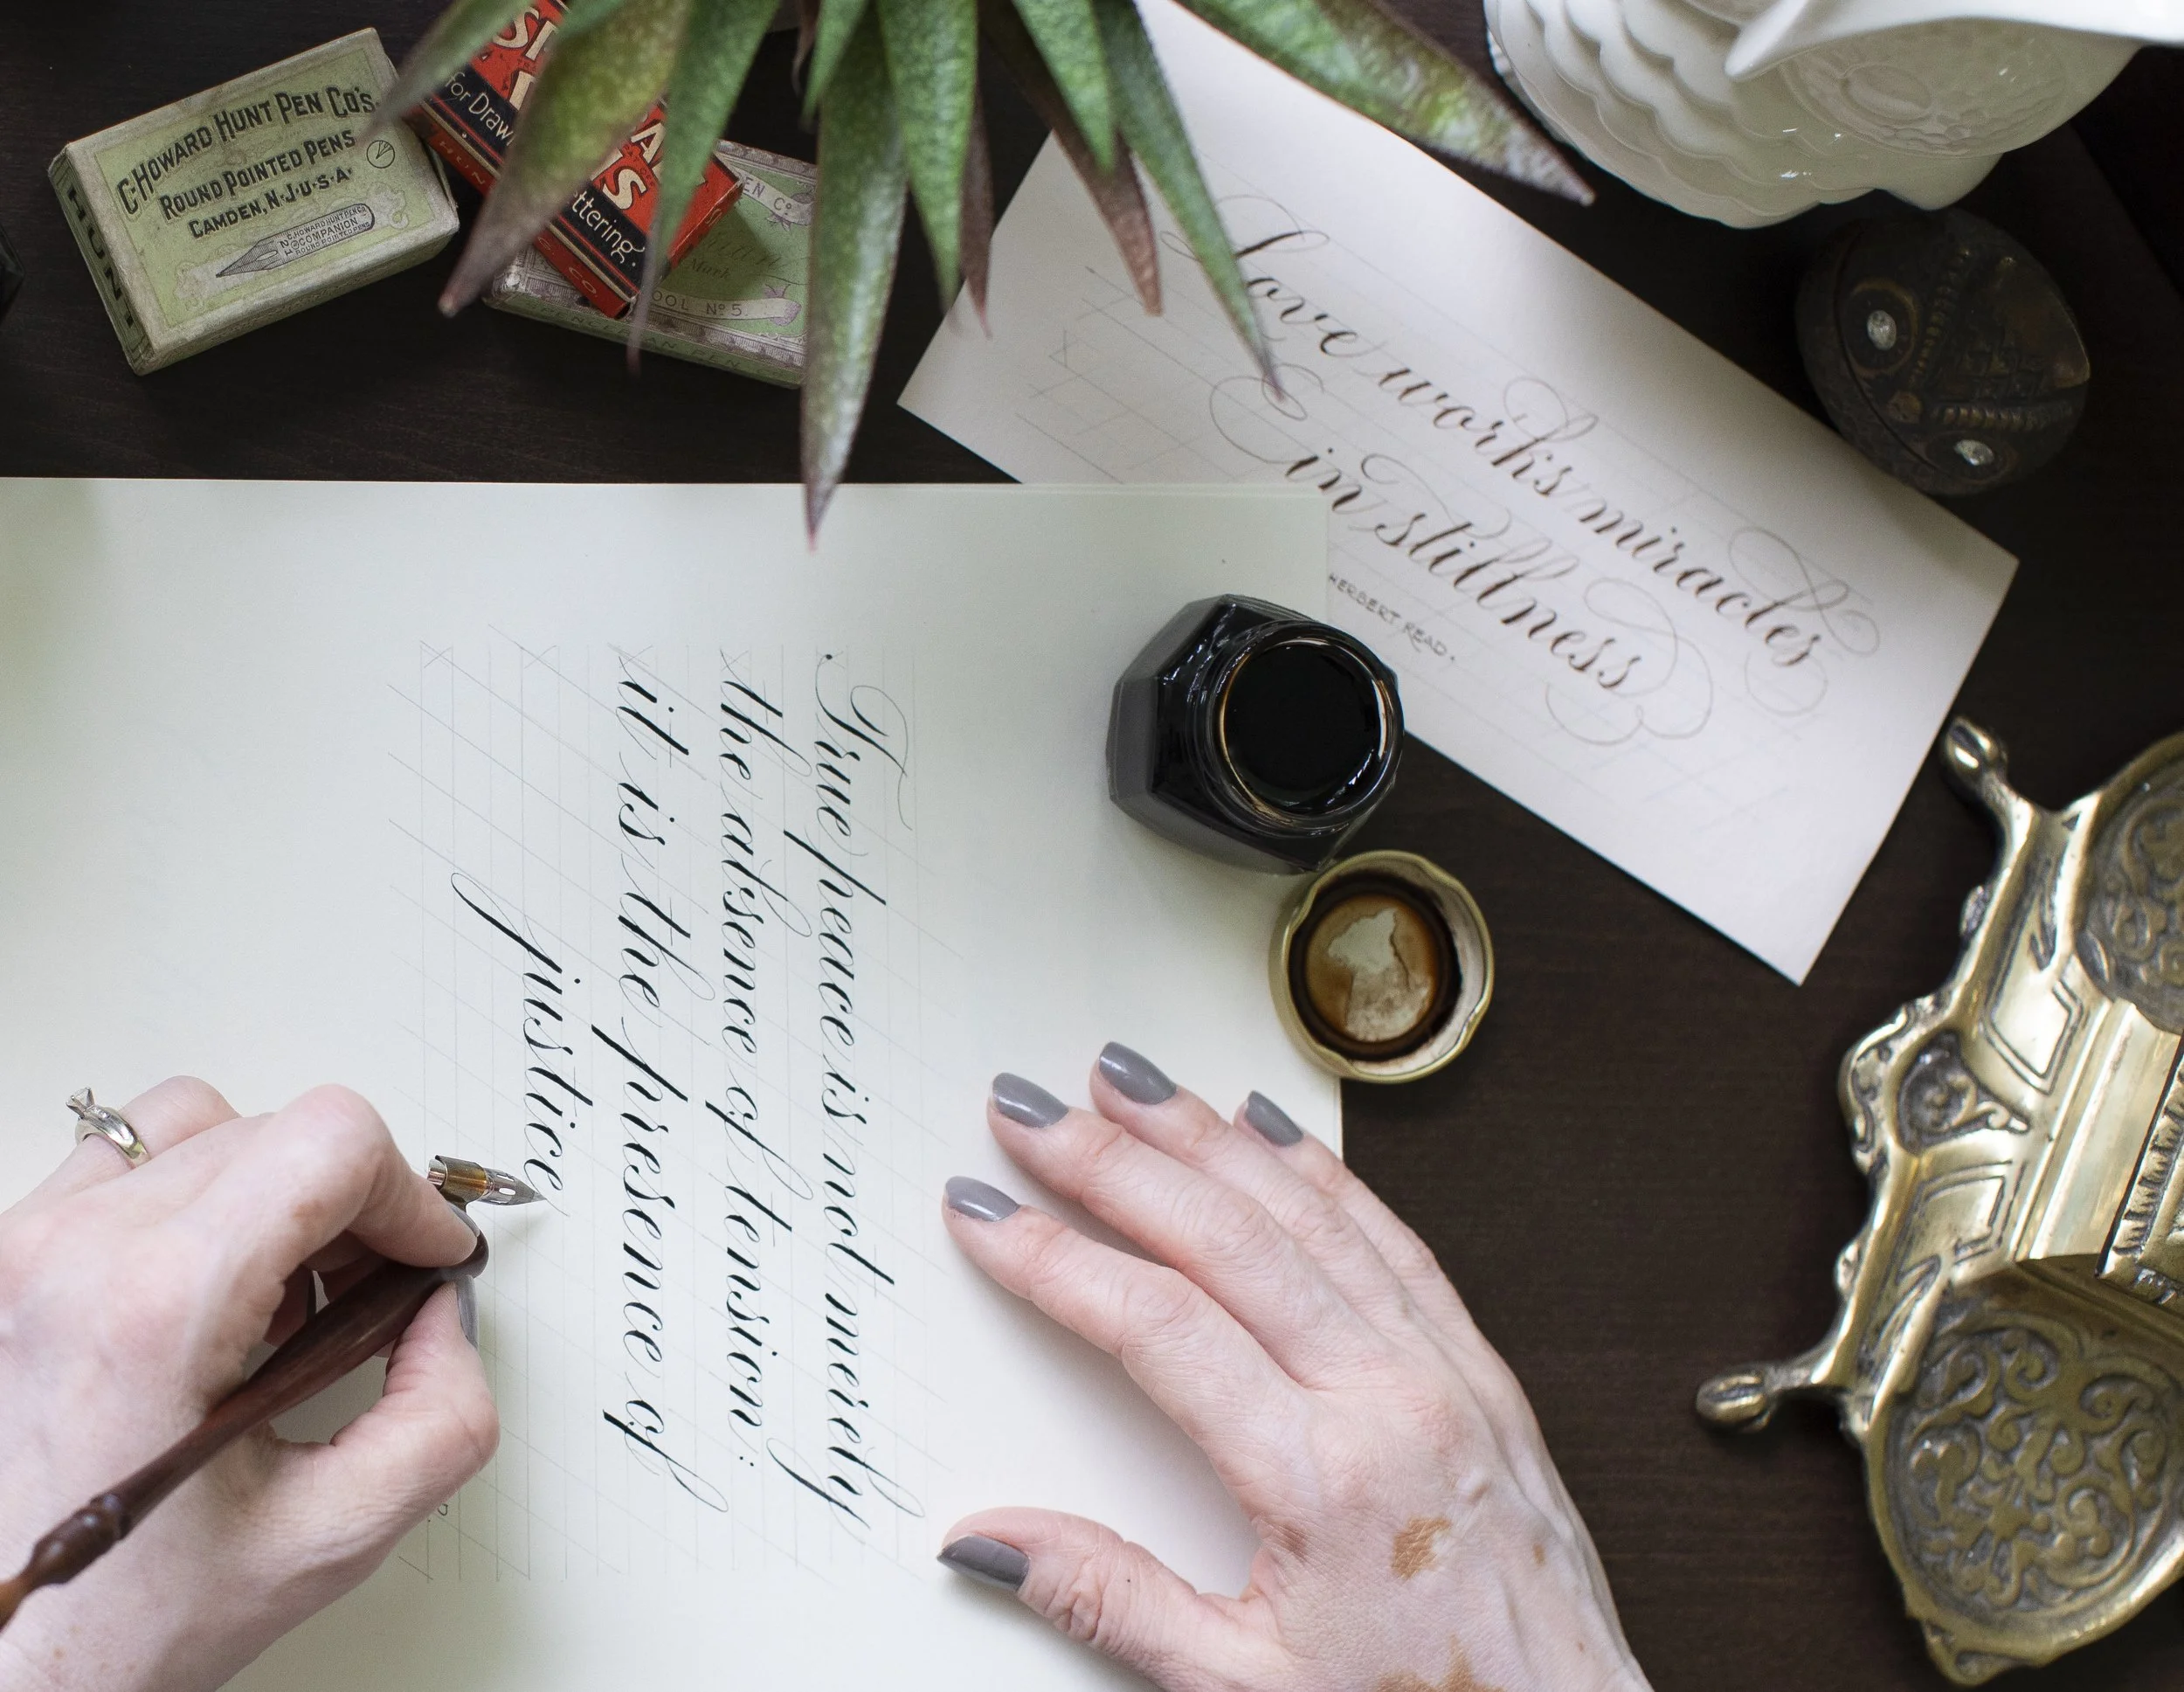 C. HOWARD HUNT PEN CO'S.
ROUND POINTED PENS
CAMDEN, N.J. U.S.A.
C. HOWARD HUNT PEN CO
COMPANION
ROUND POINTED PENS
HUNT
for Draw
ttering.
EN Co
Mark
OOL No 5.
PEN
Love works miracles
in stillness
HERBERT READ.
True peace is not merely
the absence of tension:
it is the presence of
justice